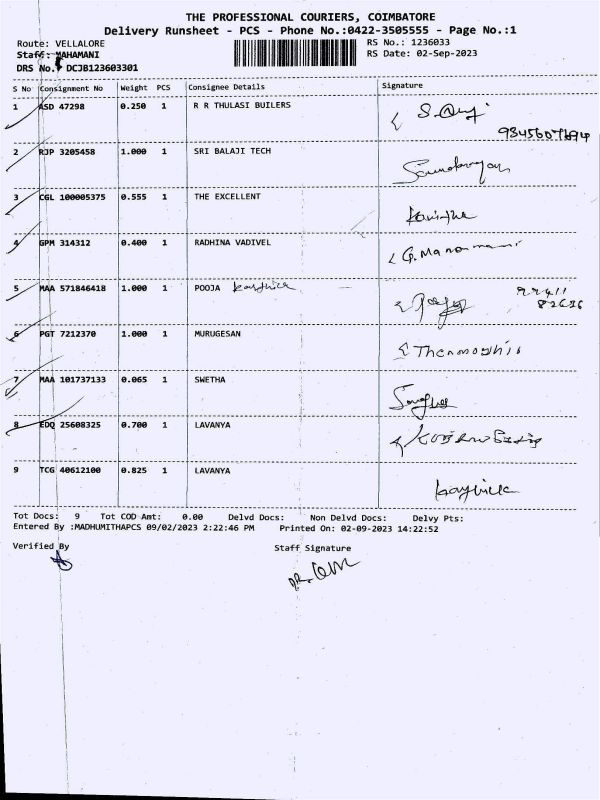 THE PROFESSIONAL COURIERS, COIMBATORE
Delivery Runsheet - PCS - Phone No.:0422-3505555 - Page No.:1
Route: VELLALORE RS No.: 1236033
Staff: MAHAMANI RS Date: 02-Sep-2023
DRS No.: DCJB123603301
S No Consignment No Weight PCS Consignee Details Signature
1 ASD 47298 0.250 1 R R THULASI BUILERS
2 RJP 3205458 1.000 1 SRI BALAJI TECH
3 CGL 100005375 0.555 1 THE EXCELLENT Kavitha
4 GPM 314312 0.400 1 RADHINA VADIVEL
5 MAA 571846418 1.000 1 POOJA
6 PGT 7212370 1.000 1 MURUGESAN
7 MAA 101737133 0.065 1 SWETHA
8 EDQ 25608325 0.700 1 LAVANYA
9 TCG 40612100 0.825 1 LAVANYA
Tot Docs: 9 Tot COD Amt: 0.00 Delvd Docs: Non Delvd Docs: Delvy Pts:
Entered By :MADHUMITHAPCS 09/02/2023 2:22:46 PM Printed On: 02-09-2023 14:22:52
Verified By Staff Signature